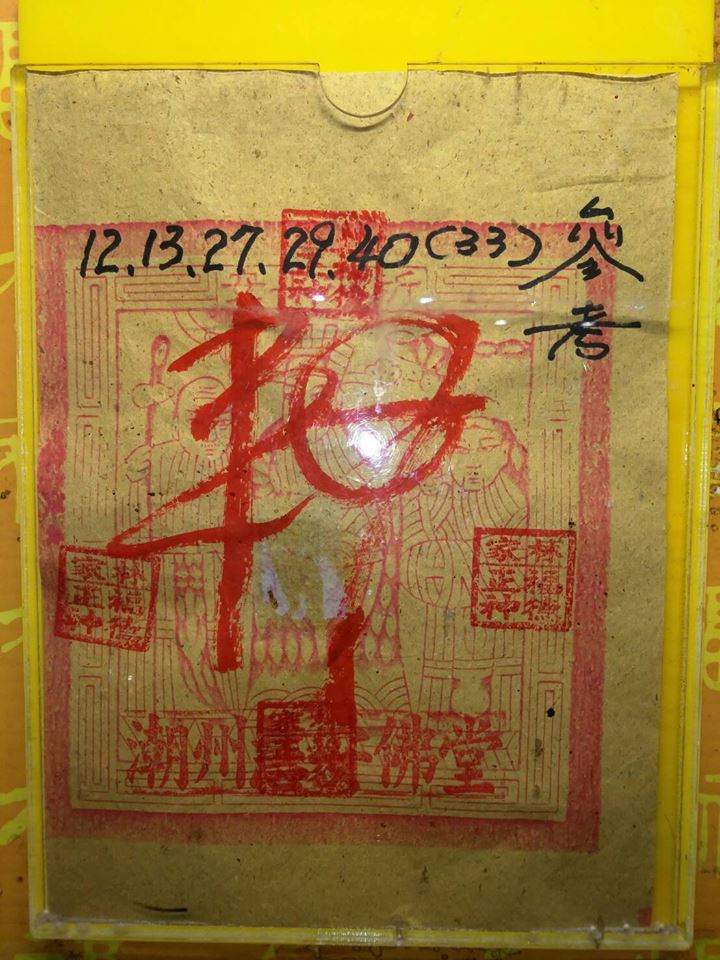 12.13.27.29.40(33)
參考
林福德
家正神
林福德
家正神
潮州 佛堂